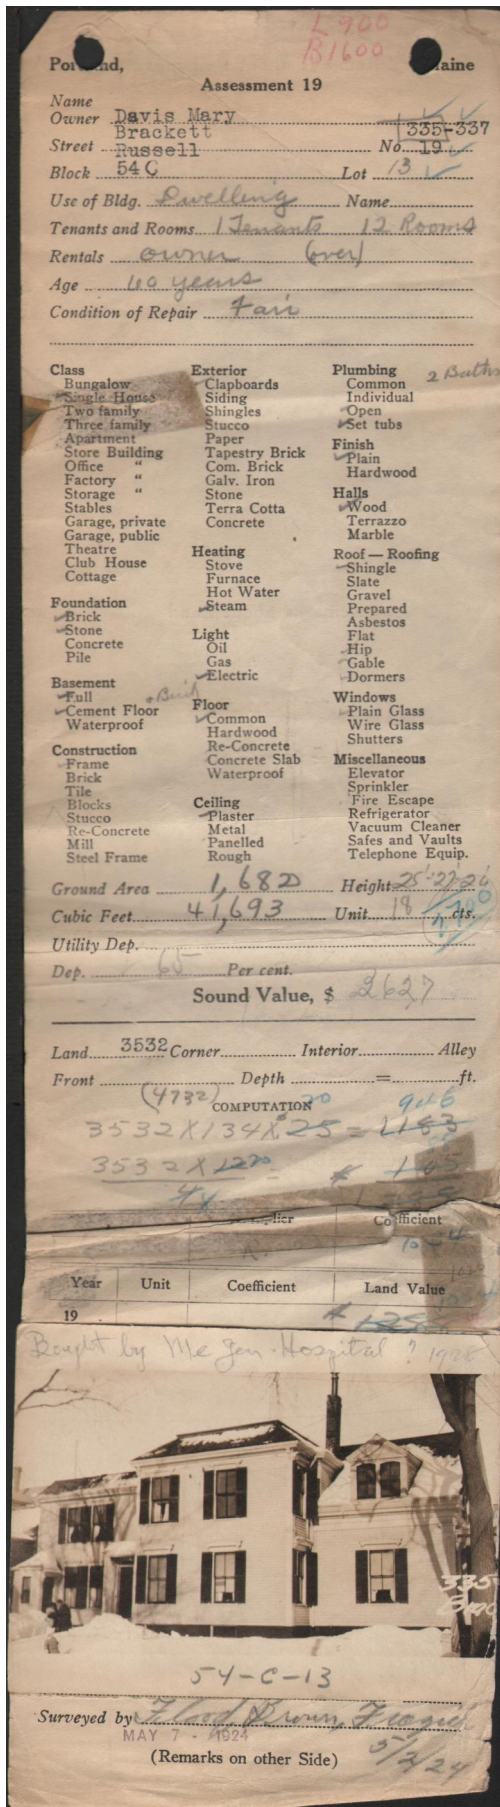 L 900
B 1600
Portland, Maine
Assessment 19
Name
Owner Davis Mary
Brackett 335-337
Street Russell No. 19
Block 54 C Lot 13
Use of Bldg. Dwelling Name
Tenants and Rooms 1 Tenants 12 Rooms
Rentals owner (over)
Age 60 years
Condition of Repair Fair
Class
Bungalow
Single House
Two family
Three family
Apartment
Store Building
Office "
Factory "
Storage "
Stables
Garage, private
Garage, public
Theatre
Club House
Cottage
Foundation
Brick
Stone
Concrete
Pile
Basement
Full
Cement Floor
Waterproof
Construction
Frame
Brick
Tile
Blocks
Stucco
Re-Concrete
Mill
Steel Frame
Exterior
Clapboards
Siding
Shingles
Stucco
Paper
Tapestry Brick
Com. Brick
Galv. Iron
Stone
Terra Cotta
Concrete
Heating
Stove
Furnace
Hot Water
Steam
Light
Oil
Gas
Electric
Floor
Common
Hardwood
Re-Concrete
Concrete Slab
Waterproof
Ceiling
Plaster
Metal
Panelled
Rough
Plumbing 2 Baths
Common
Individual
Open
Set tubs
Finish
Plain
Hardwood
Halls
Wood
Terrazzo
Marble
Roof — Roofing
Shingle
Slate
Gravel
Prepared
Asbestos
Flat
Hip
Gable
Dormers
Windows
Plain Glass
Wire Glass
Shutters
Miscellaneous
Elevator
Sprinkler
Fire Escape
Refrigerator
Vacuum Cleaner
Safes and Vaults
Telephone Equip.
Ground Area 1,682 Height
Cubic Feet 41,693 Unit 18 cts.
Utility Dep.
Dep. 65 Per cent.
Sound Value, $ 2627
Land 3532 Corner Interior Alley
Front Depth = ft.
(4732) COMPUTATION 20 946
3532 X 134 X 25 = 1183
3532 X 12
44
Coefficient
Year Unit Coefficient Land Value
19
Bought by Me Gen. Hospital ? 1928
335
54-C-13
Surveyed by Flood, Brown, Frazier
MAY 7 - 1924 5/2/24
(Remarks on other Side)